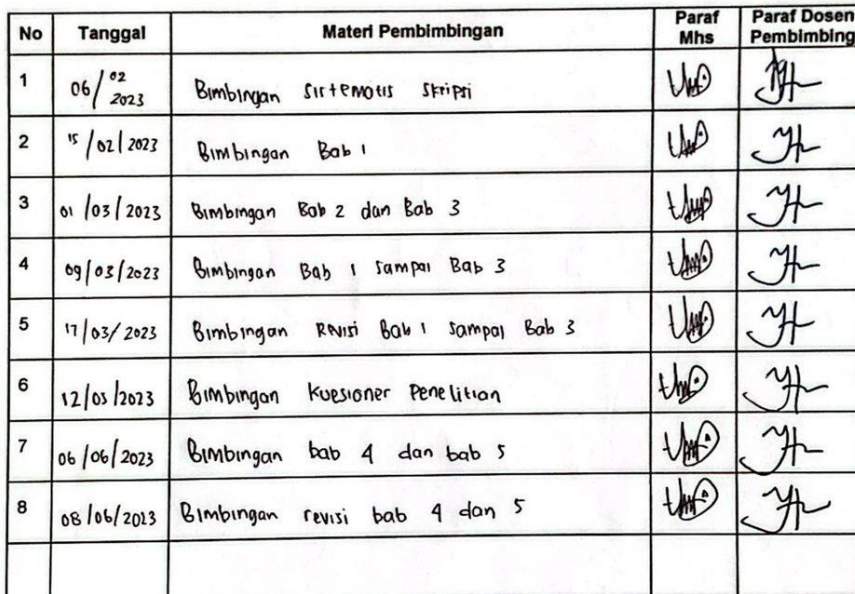 No Tanggal Materi Pembimbingan Paraf Mhs Paraf Dosen Pembimbing
1 06/02 2023 Bimbingan Sistematis Skripsi
2 15/02/2023 Bimbingan Bab 1
3 01/03/2023 Bimbingan Bab 2 dan Bab 3
4 09/03/2023 Bimbingan Bab 1 sampai Bab 3
5 17/03/2023 Bimbingan Revisi Bab 1 sampai Bab 3
6 12/05/2023 Bimbingan Kuesioner Penelitian
7 06/06/2023 Bimbingan bab 4 dan bab 5
8 08/06/2023 Bimbingan revisi bab 4 dan 5